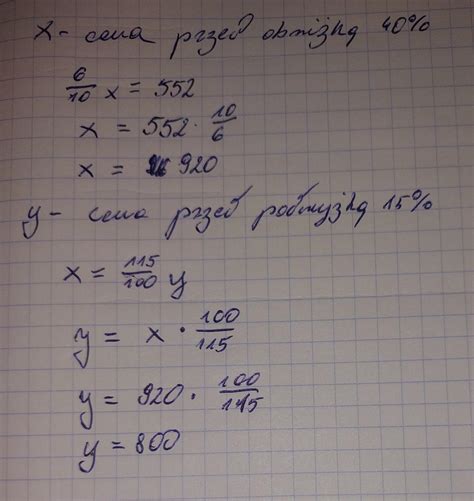 x - cena przed obniżką 40%
6/10 x = 552
x = 552 · 10/6
x = 920
y - cena przed podwyżką 15%
x = 115/100 y
y = x · 100/115
y = 920 · 100/115
y = 800